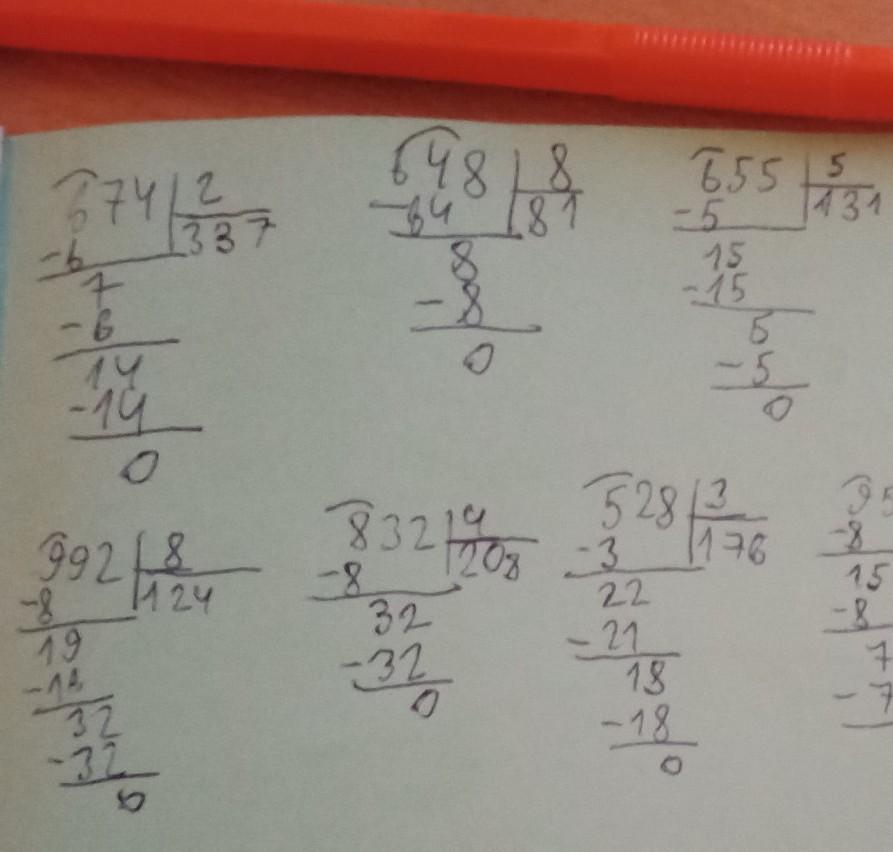 674 2
-6 337
7
-6
14
-14
0
648 8
-64 81
8
-8
0
655 5
-5 131
15
-15
5
-5
0
992 8
-8 124
19
32
-32
0
832 4
-8 208
32
-32
0
528 3
-3 176
22
-21
18
-18
0
95
-8
15
-8
7
-7